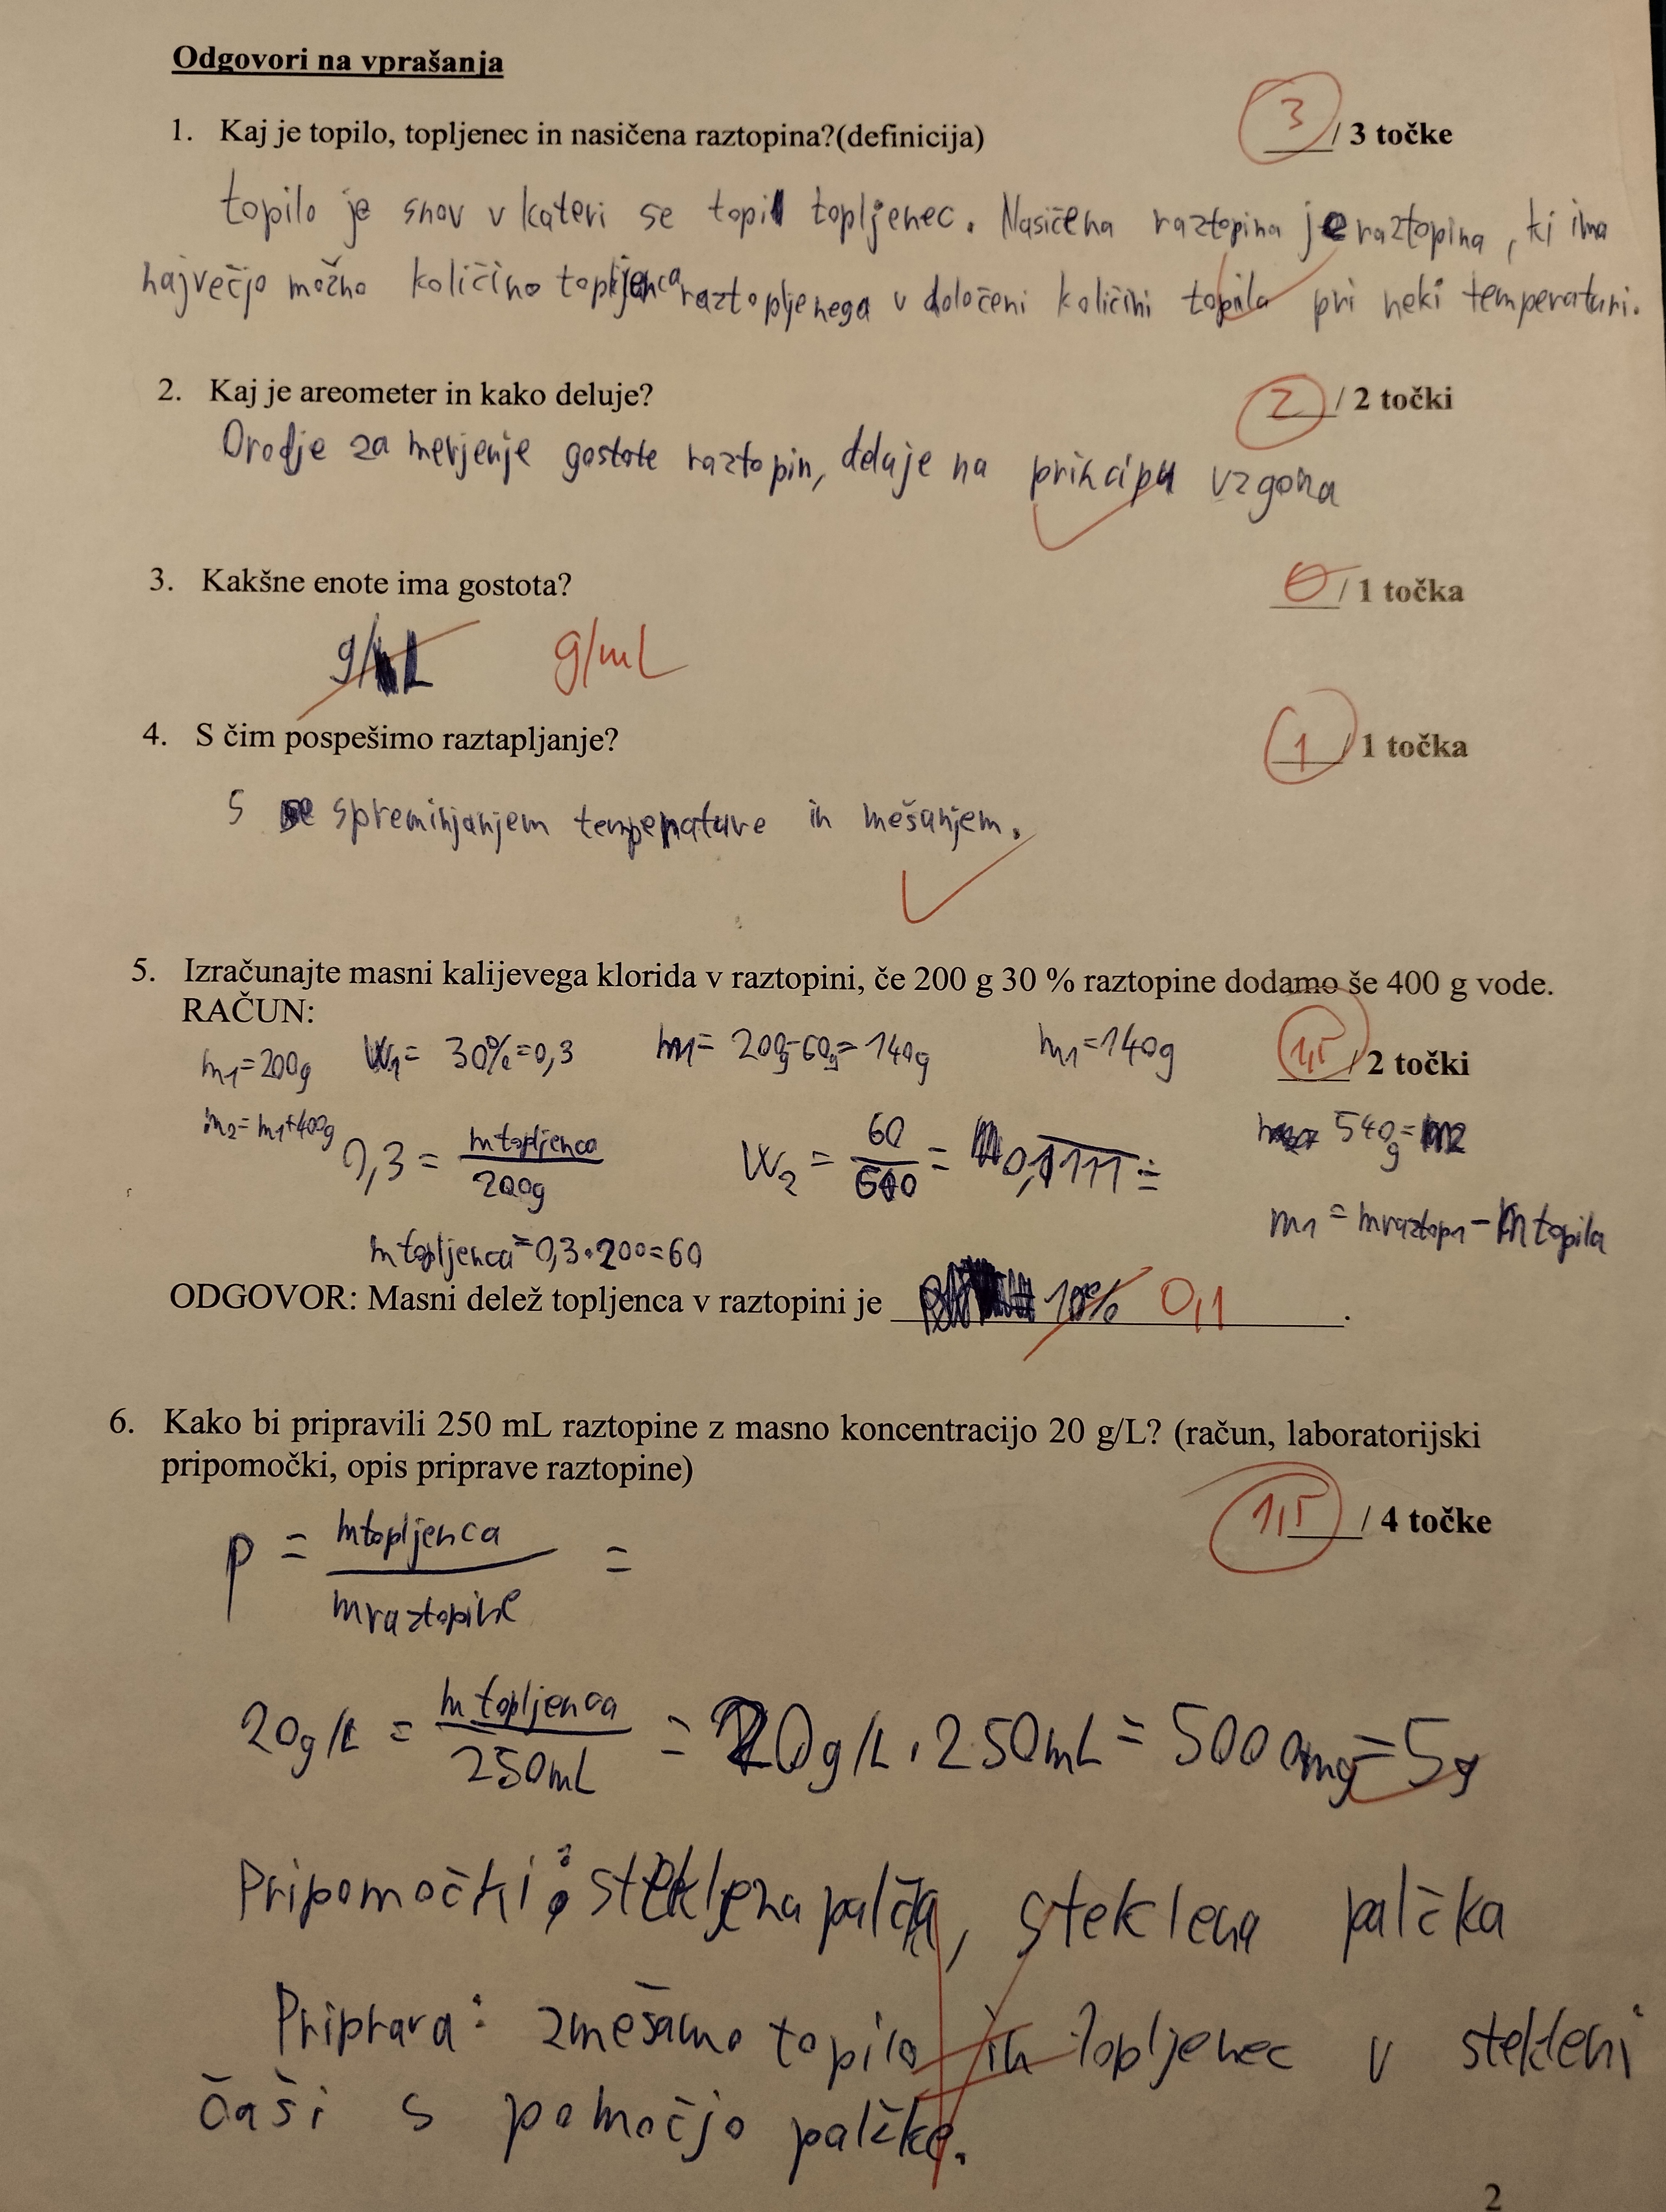 Odgovori na vprašanja
1. Kaj je topilo, topljenec in nasičena raztopina?(definicija)
3 / 3 točke
topilo je snov v kateri se topi topljenec. Nasičena raztopina je raztopina, ki ima
največjo možno količino topljenca raztopljenega v določeni količini topila pri neki temperaturi.
2. Kaj je areometer in kako deluje?
2 / 2 točki
Orodje za merjenje gostote raztopin, deluje na principu vzgona
3. Kakšne enote ima gostota?
0 / 1 točka
g/L g/mL
4. S čim pospešimo raztapljanje?
1 / 1 točka
S spreminjanjem temperature in mešanjem.
5. Izračunajte masni kalijevega klorida v raztopini, če 200 g 30 % raztopine dodamo še 400 g vode.
RAČUN:
1,5 / 2 točki
m1=200g W1= 30%=0,3 m1= 200g-60g=140g m1=140g
m2=m1+400g 0,3 = mtopljenca/200g W2 = 60/540 = 0,1111 = 540g=m2
m1 = mraztop1 - mtopila
mtopljenca=0,3·200=60
ODGOVOR: Masni delež topljenca v raztopini je 10% 0,1 .
6. Kako bi pripravili 250 mL raztopine z masno koncentracijo 20 g/L? (račun, laboratorijski
pripomočki, opis priprave raztopine)
1,5 / 4 točke
p = mtopljenca/mraztopine =
20g/L = mtopljenca/250mL = 20g/L·250mL = 5000mg=5g
Pripomočki: steklena palčka
Priprava: zmešamo topilo in topljenec v stekleni
čaši s pomočjo palčke.
2